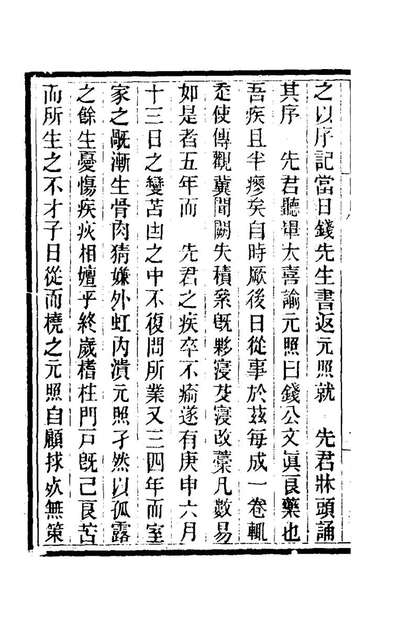 之以序記當日錢先生書返元照就　先君牀頭誦
其序　先君聽畢大喜諭元照曰錢公文眞良藥也
吾疾且半瘳矣自時厥後日從事於茲每成一卷輒
走使傳觀冀聞闕失積槀旣夥寖芟寖改藁凡數易
如是者五年而　先君之疾卒不瘉遂有庚申六月
十三日之變苫凷之中不復問所業又三四年而室
家之戹漸生骨肉猜嫌外虹內潰元照孑然以孤露
之餘生憂傷疾疢相嬗乎終歲榰柱門戸旣已良苦
而所生之不才子日從而橈之元照自顧捄𣧑無策